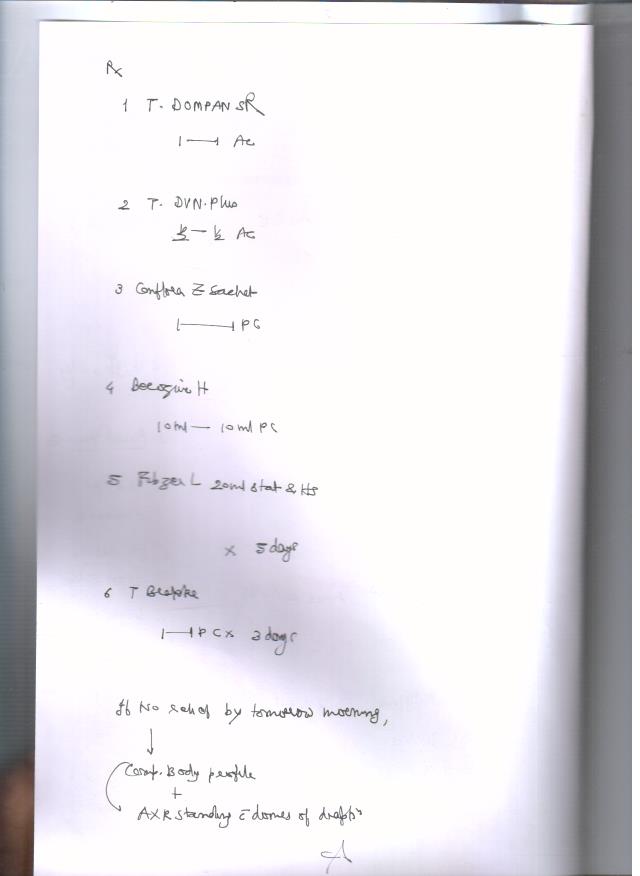 Rx
1 T. DOMPAN SR
1 — 1 AC
2 T. DVN. Plus
½ — ½ AC
3 Conflora Z Sachet
1 — 1 PC
4 H
10 ml — 10 ml PC
5 L 20ml stat & HS
x 5 days
6 T
1 — 1 PC x 3 days
If No relief by tomorrow morning,
↓
Comp. Body profile
+
AXR standing c̄ domes of